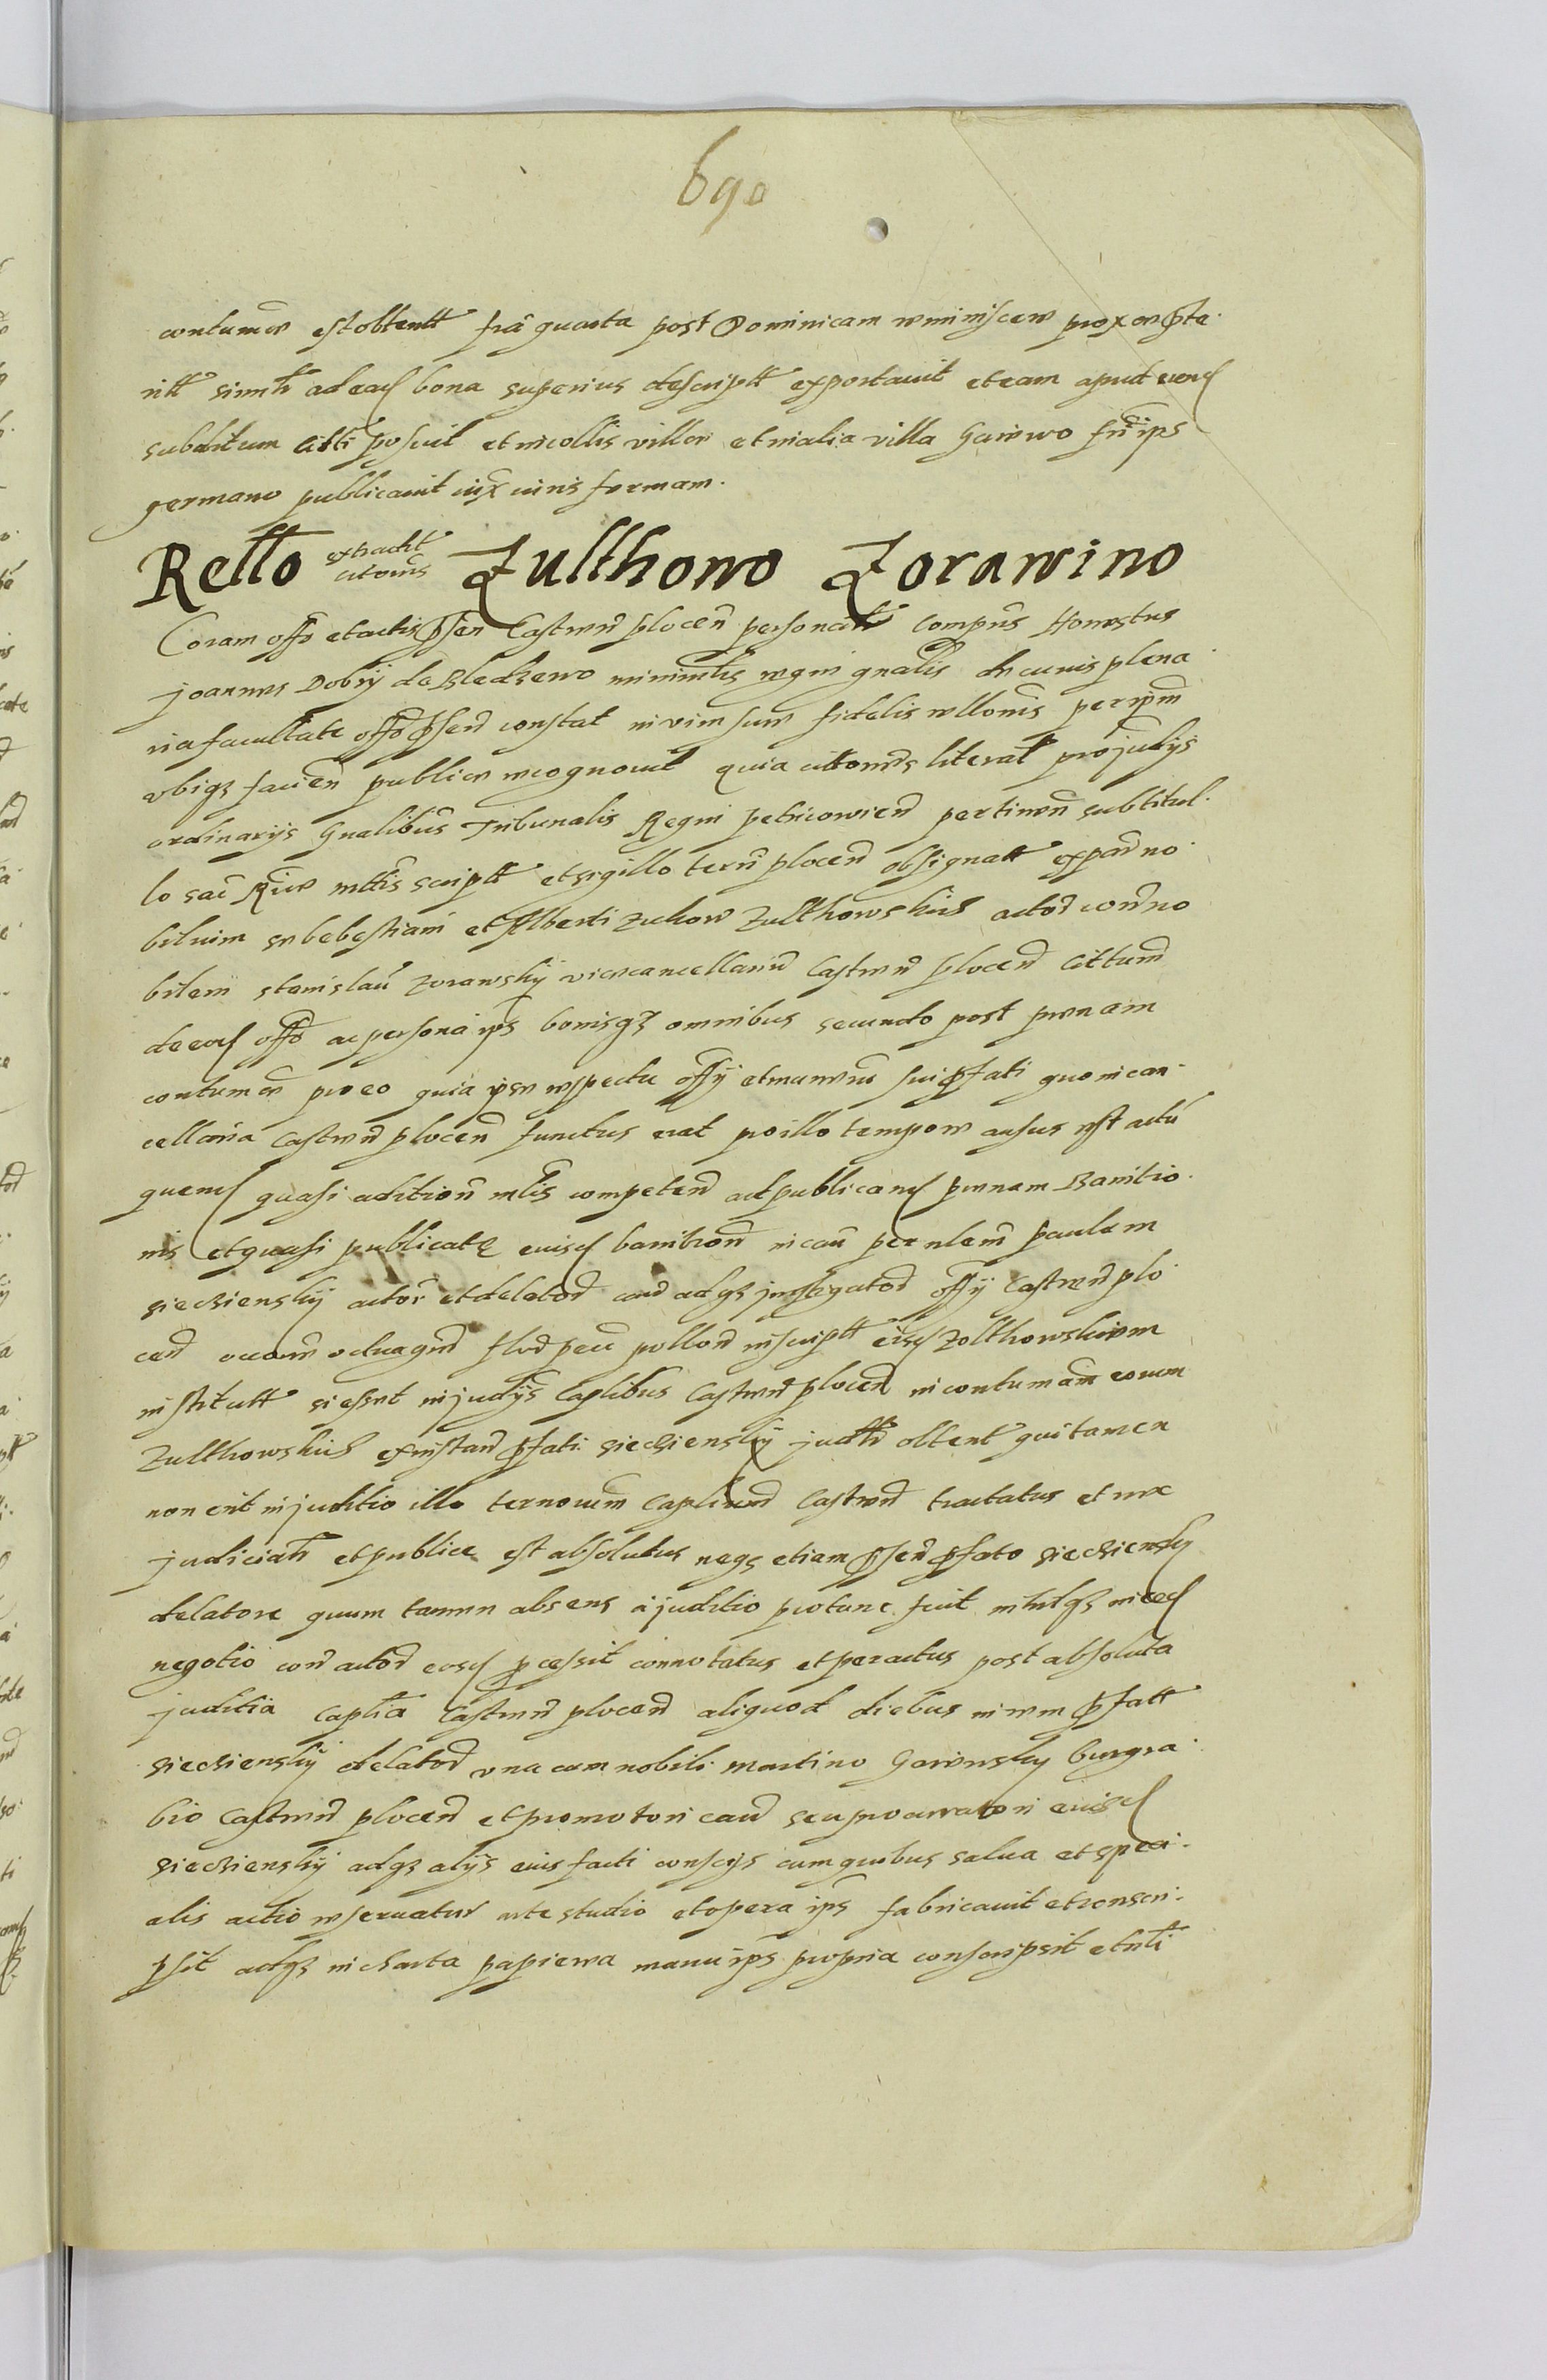 690
contumcia est obtentt fria quarta post Dominicam reminiscere proxe prte
ritt simul ad ead bona superius descriptt exportavit et eam apud eund
subditum citti posuit et in collis villae et in alia villa Gaiewo frd ips
germano publicavit iuxt iuris formam.
Rello extracht citonis Zulthowo Zorawino
Coram offo et actis pnsen Castren plocen personalt compns Honestus
joannes Dobry de Bledzewo ministlis regni gnalis de cuius plena
ria facultate offo pnsen constat in vim suae fidelis rellonis per ipm
vbiqz facien publice recognovit quia cittonis literal pro judiys
ordinarys Gnalibus Tribunalis Regni petricovien pertinen sub titul
lo sac Rgiae mttis scriptt et sigillo terri plocen obsignatt ex parte no
bilium Sebestiani et Alberti Zuchow Zulthowskich actor contra no
bilem stanislau Zorawsky vicecancellariu Castren plocen cittum
de eod offo ac persona ips bonisqz omnibus secundo post penam
contumciae pro eo quia ipse respectu offy et muneris sui pfati quo in can
cellaria Castren plocen functus erat pro illo tempore ausus est actu
quend quasi adition mlis competen ad publicand penam Bannitio
nis et quasi publicatę eiusd bannition in cau per nlem paulum
siecziensky actore et delatore adqz jnstigatore offy Castren plo
cen octuagin flor pecu pollon inscriptt eisd Zolthowskim
institutt si esset in judiys Caplibus Castren plocen in contumam eorum
Zulthowskich ex instan pfati sieczienskÿ judtr obtent qui tamen
non erit in juditio illo ternorum Capliud Castren tractatus et nec
judicialt et publice est absolutus neqz etiam pnsen pfato siecziensky
delatore quum tamen absens a juditio protunc fuit nihilqz in eod
negotio con actor eosd pcessit connotatus et peractus post absoluta
juditia Caplia Castren plocen aliquod diebus in rem pfatt
sieczienskÿ delator vna cum nobili Martino Garwnsky burgra
bio Castren plocen et promotori cau seu procuratori eiusd
sieczienskÿ adqz alys eius facti conscys cum quibus salua et speci
alis actio reservatur arte studio et opera ips fabricavit et conscri
psit adqz in charta papirea manu ips propria conscripsit et illi